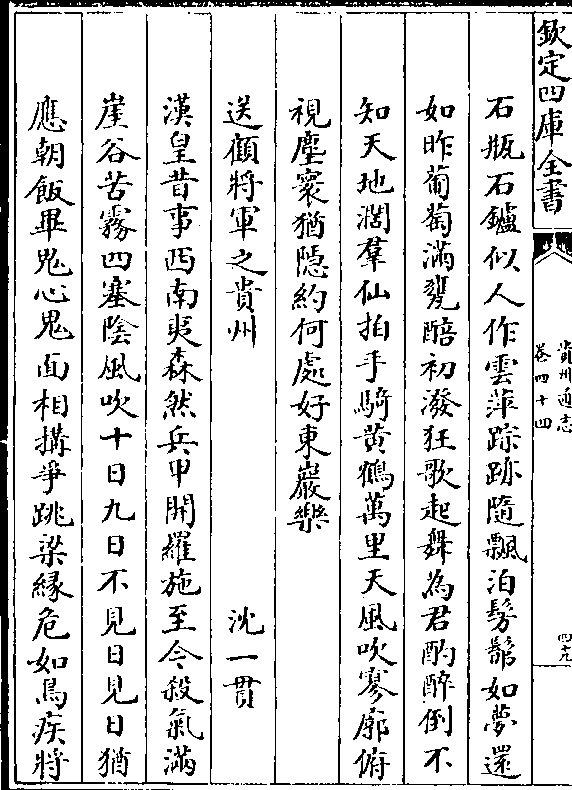 欽定四庫全書
貴州通志
卷四十四
四十九
石瓶石鑪似人作雲萍踪跡隨飄泊髣髴如夢還
如昨葡萄滿甕醅初潑狂歌起舞為君酌醉倒不
知天地濶羣仙拍手騎黄鶴萬里天風吹寥廓俯
視塵寰猶隱約何處好東巖樂
送顧將軍之貴州 沈一貫
漢皇昔事西南夷森然兵甲開羅施至今殺氣滿
崖谷苦霧四塞陰風吹十日九日不見日見日猶
應朝飯畢鬼心鬼面相搆爭跳梁緣危如鳥疾將